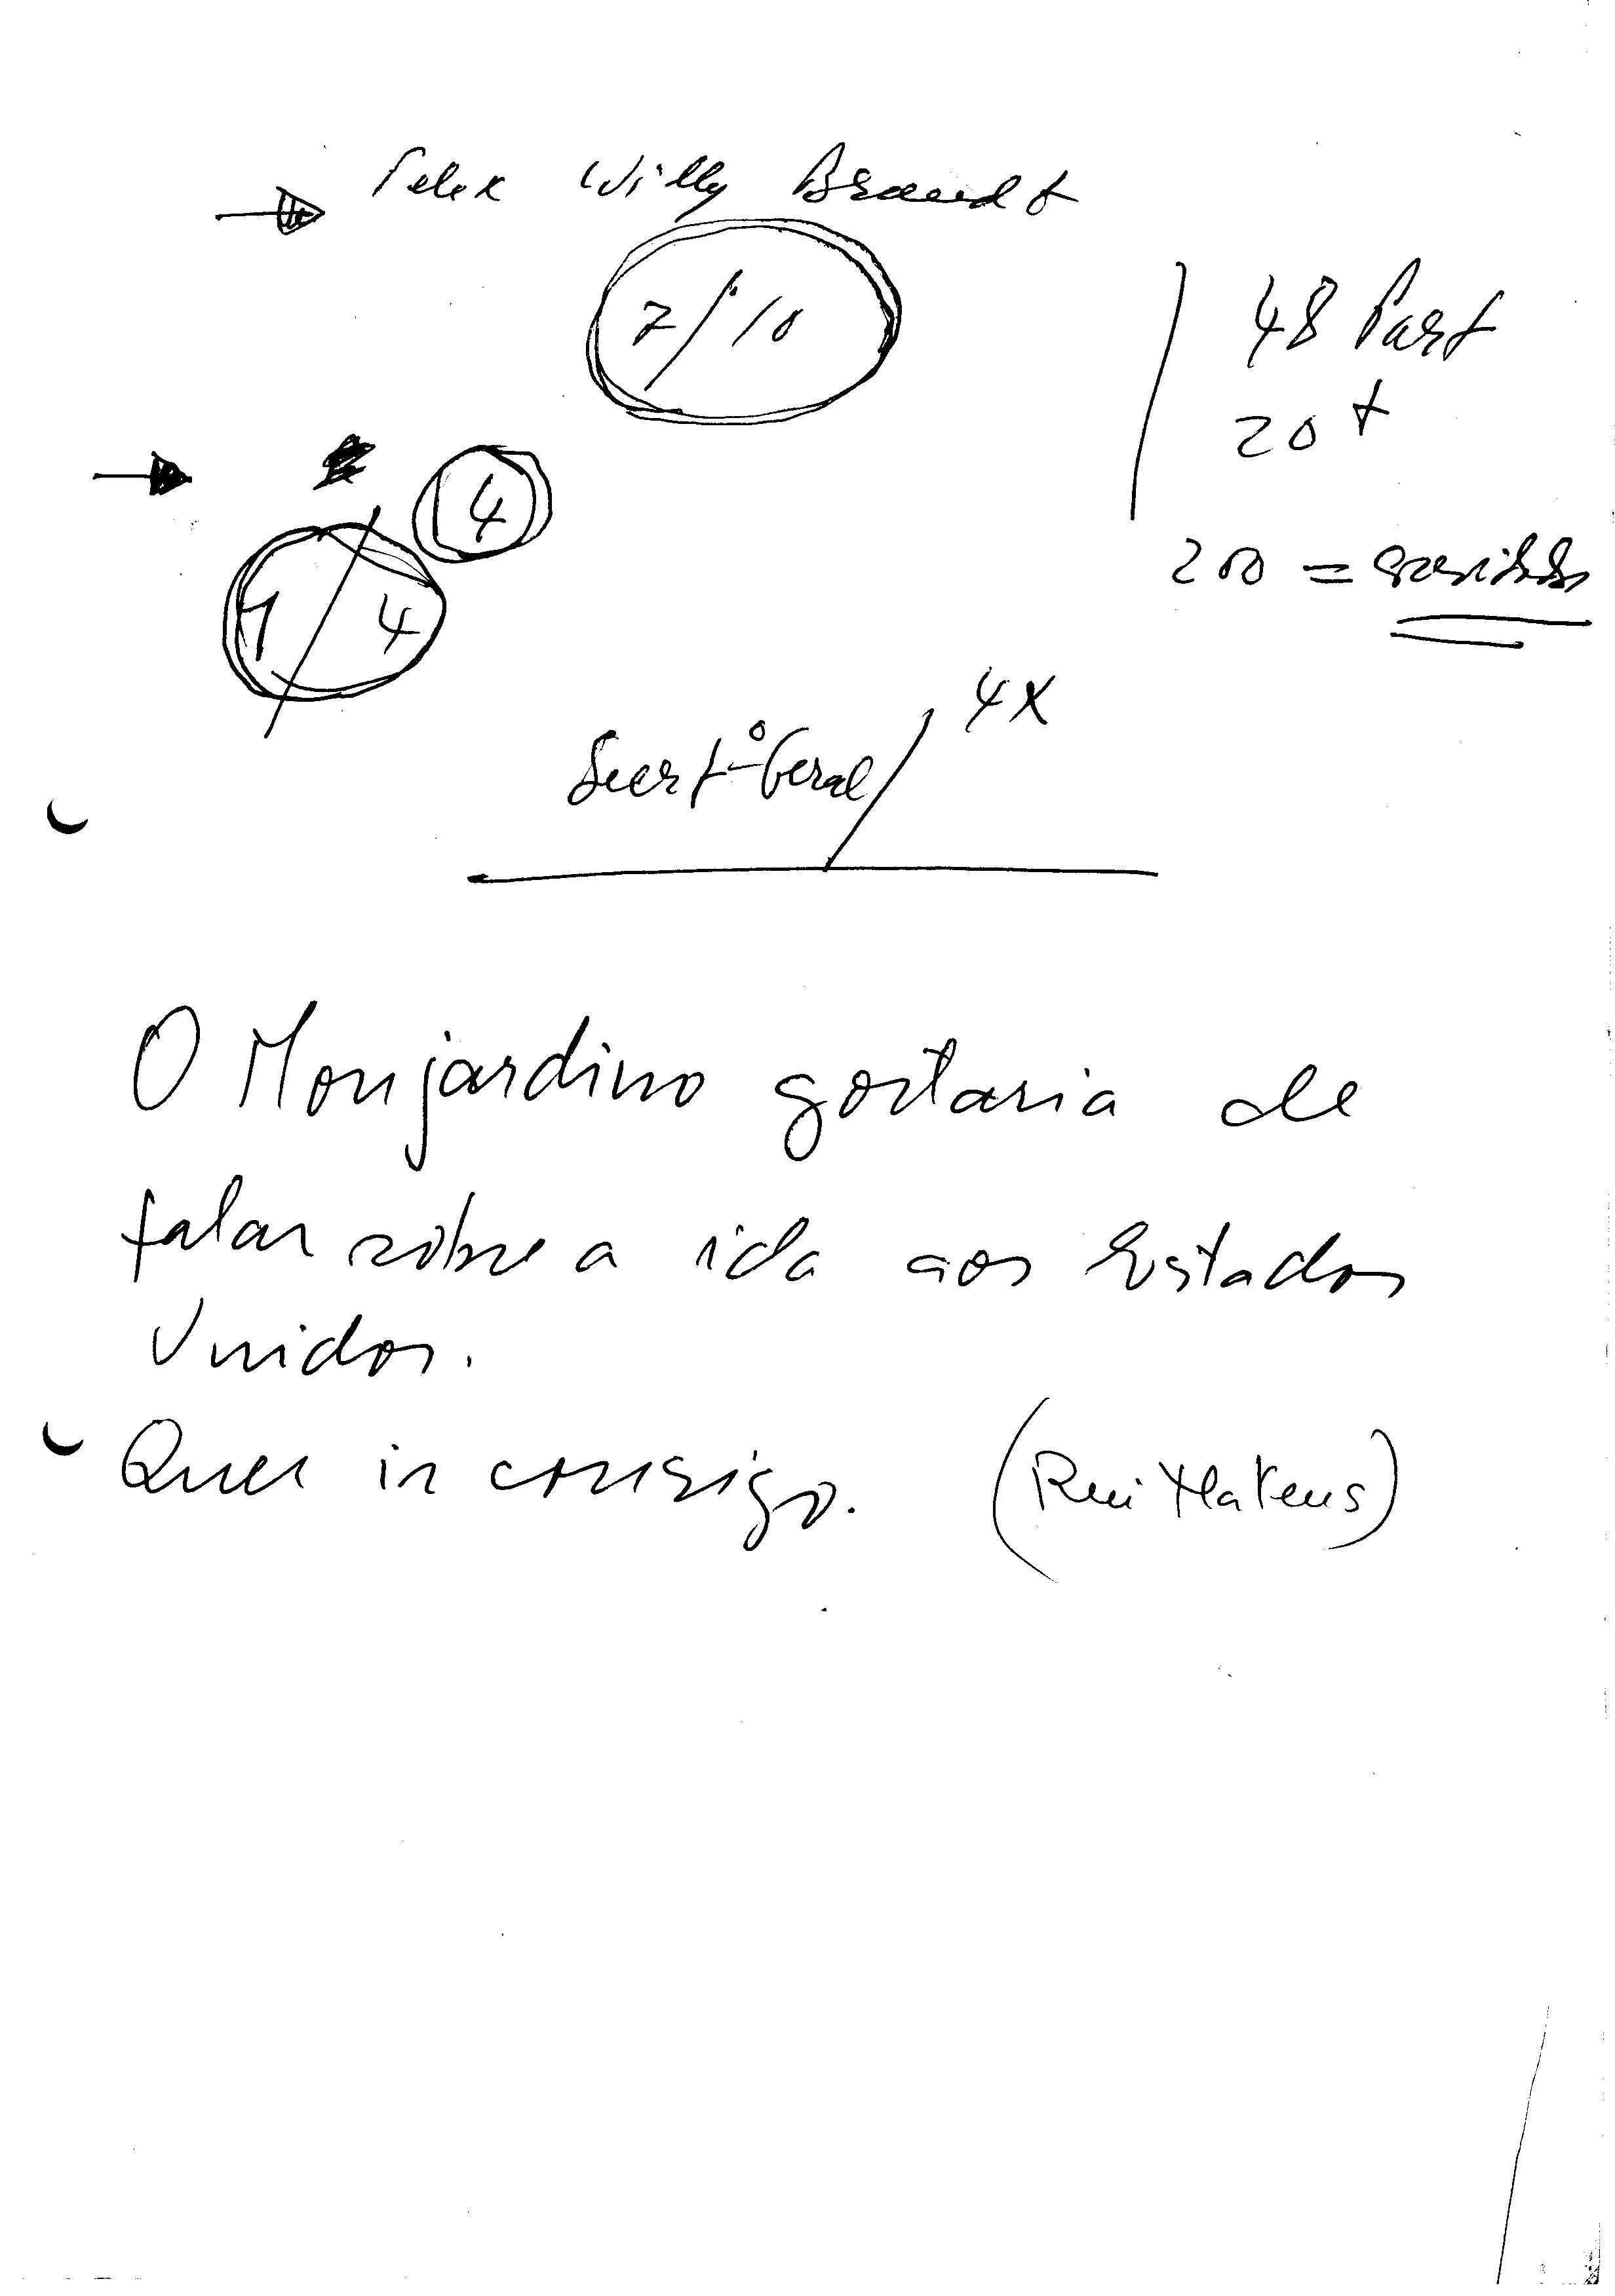 Telex Willy Brandt
7/10
48 Part
20 +
4
200 =
1/4
Secrt.º Geral / 4X
O Monjardino gostaria de
falar sobre a ida aos Estados
Unidos.
Quer ir consigo. (Rui Mateus)